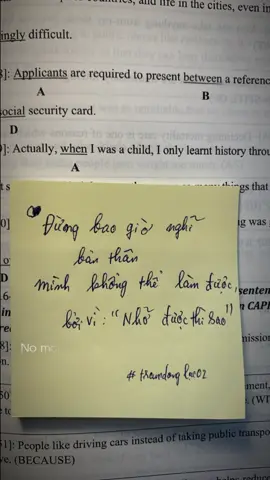 countries, and life in the cities, even in
ingly difficult.
]: Applicants are required to present between a reference
A B
social security card.
D
]: Actually, when I was a child, I only learnt history throu
A
things that
Đừng bao giờ nghĩ
bản thân
mình không thể làm được,
bởi vì: "Nhỡ được thì sao"
#tramdongluc02
No m
D
senten
CAPI
mission
51]: People like driving cars instead of taking public transpo
ve. (BECAUSE)